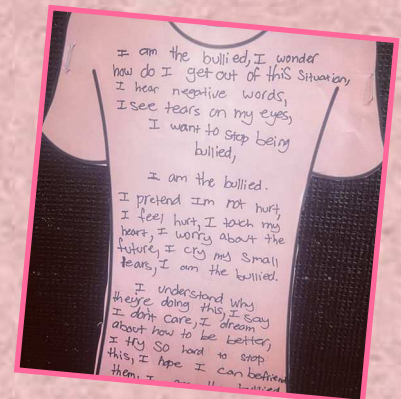 I am the bullied, I wonder
how do I get out of this situation,
I hear negative words,
I see tears on my eyes,
I want to stop being
bullied,
I am the bullied.
I pretend Im not hurt,
I feel hurt, I touch my
heart, I worry about the
future, I cry my small
tears, I am the bullied.
I understand why
they're doing this, I say
I don't care, I dream
about how to be better,
I try so hard to stop
this, I hope I can befriend
them, I am the bullied